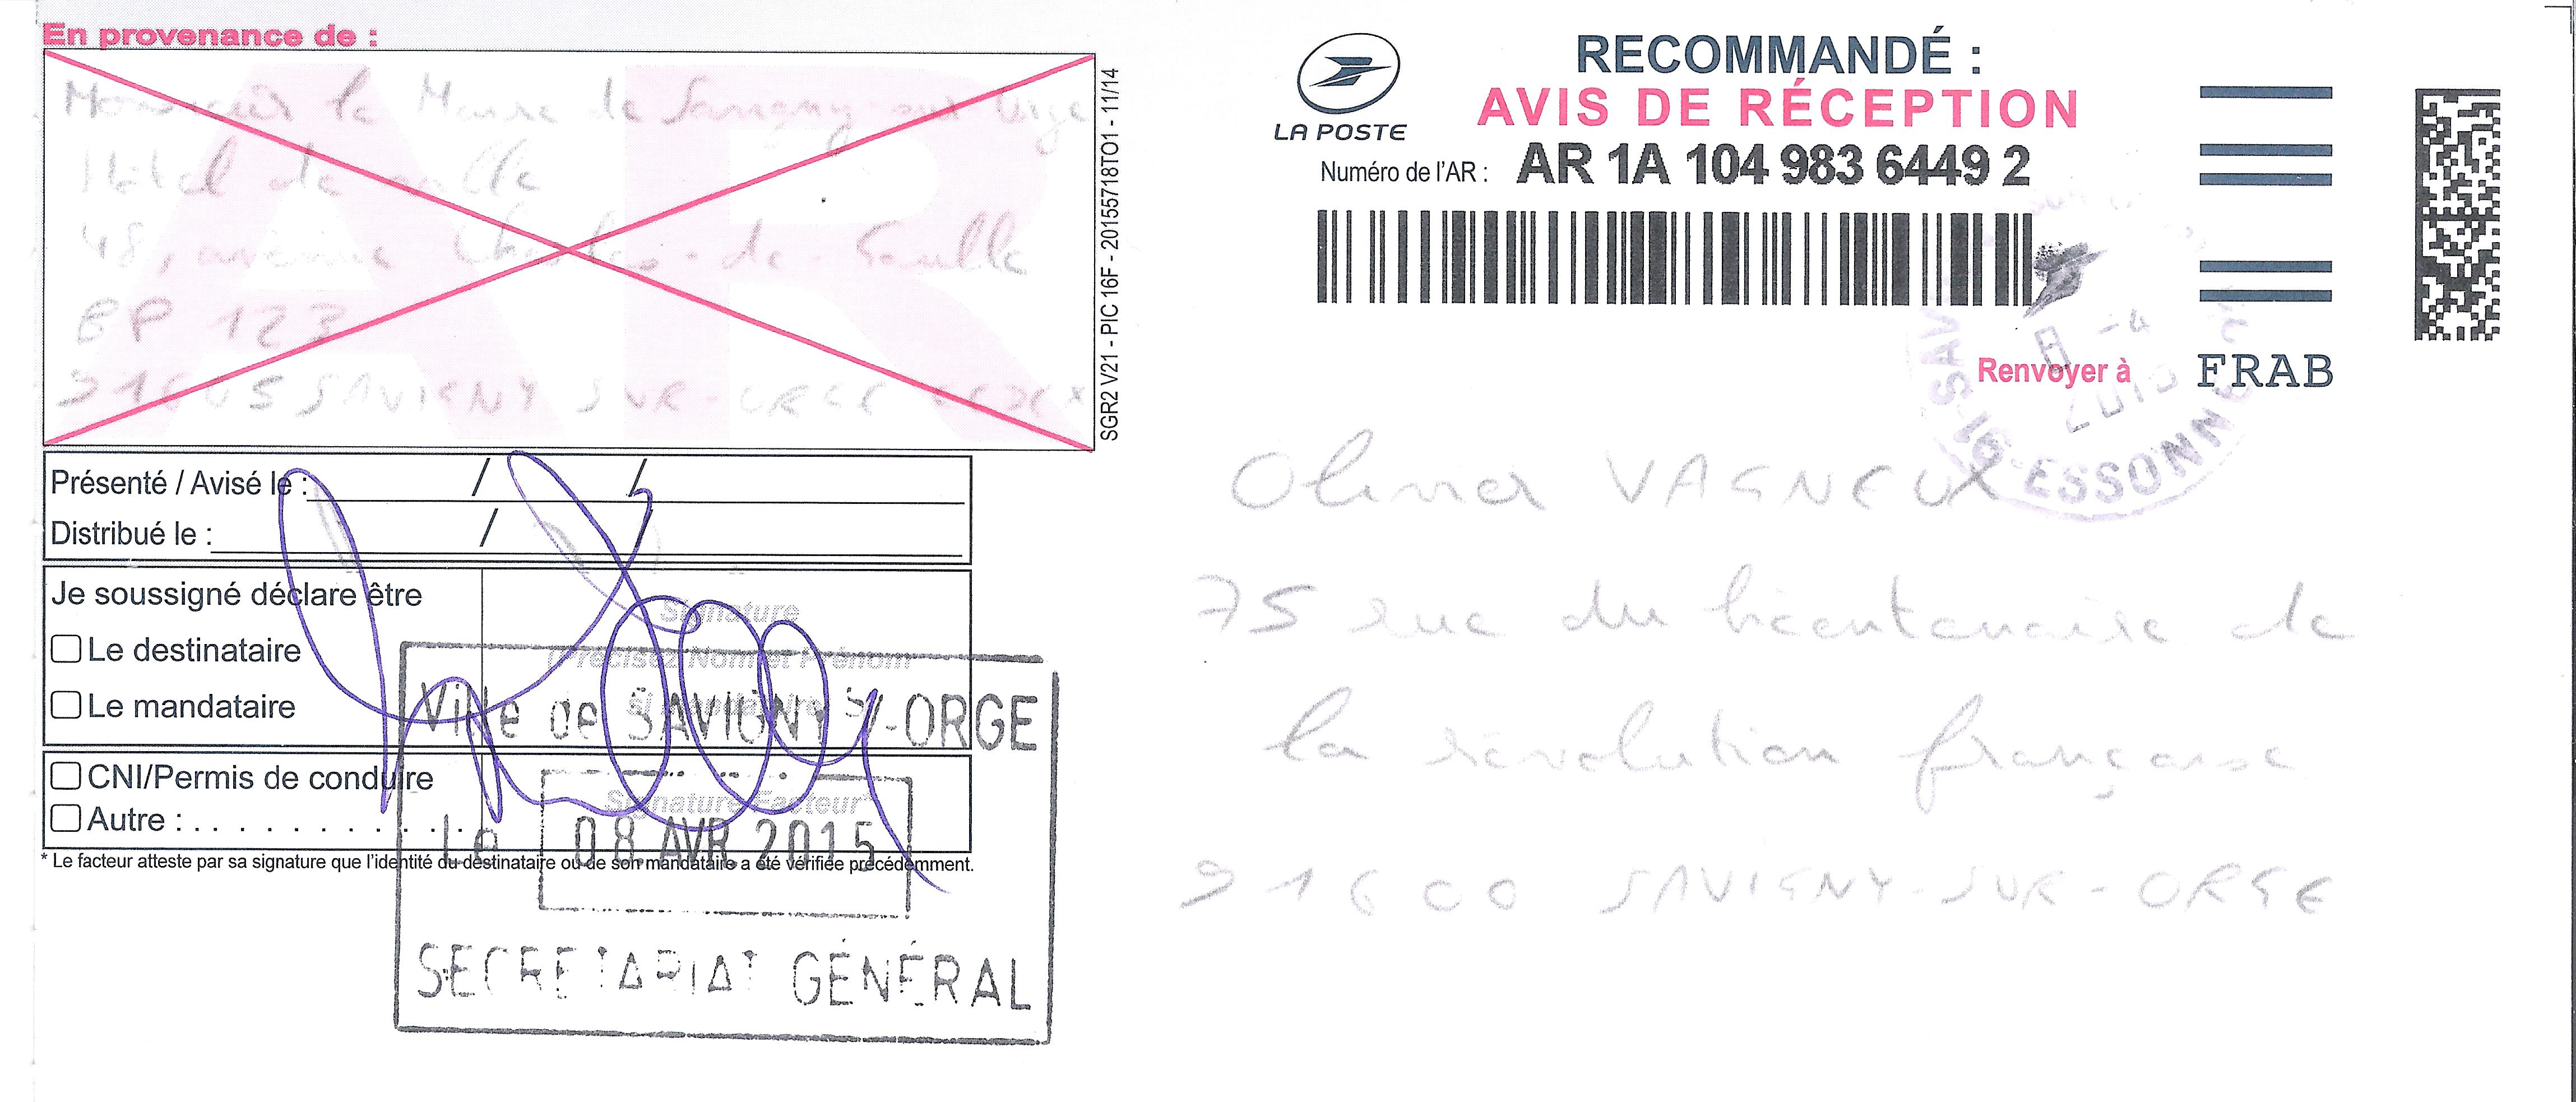 En provenance de :
Monsieur le Maire de Savigny-sur-Orge
Hôtel de ville
48, avenue Charles-de-Gaulle
BP 123
91605 SAVIGNY SUR-ORGE CEDEX
SGR2 V21 - PIC 16F - 20155718TO1 - 11/14
Présenté / Avisé le : / /
Distribué le : / /
Je soussigné déclare être
Le destinataire
Le mandataire
Signature
(Précisez Nom et Prénom
si mandataire)
CNI/Permis de conduire
Autre : . . . . . . . . . .
Signature Facteur*
* Le facteur atteste par sa signature que l'identité du destinataire ou de son mandataire a été vérifiée précédemment.
Ville de SAVIGNY S/-ORGE
Le 08 AVR 2015
SECRETARIAT GÉNÉRAL
LA POSTE
RECOMMANDÉ :
AVIS DE RÉCEPTION
Numéro de l'AR : AR 1A 104 983 6449 2
Renvoyer à
FRAB
ESSONNE
Olivier VAGNEUX
75 rue du bicentenaire de
la révolution française
91600 SAVIGNY-SUR-ORGE